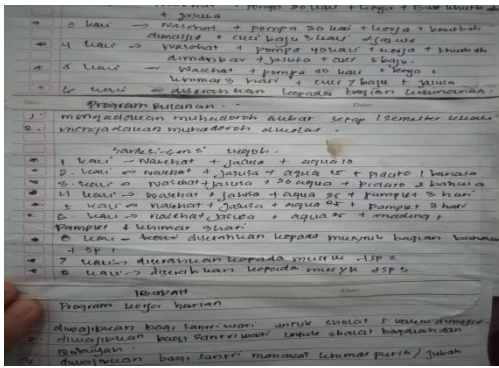 3 kali → Nasehat + pompa 30 kali + kerja + khutbah
dimasjid + cuci baju 3 kali + jasusa
4 kali → Nasehat + pompa 40 kali + kerja + khutbah
dimimbar + jasusa + cuci 5 baju
5 kali → Nasehat + pompa 40 kali + kerja +
khimar 3 hari + cuci 7 baju + jasusa
6 kali → diserahkan kepada bagian keamanan.
Program Bulanan
1. mengadakan muhadoroh akbar setiap 1 semester sekali
2. mengadakan muhadoroh
1 kali → Nasehat + jasusa + aqua 10
2. kali → Nasehat + jasusa + aqua 15 + pidato 1 bahasa
3. kali → nasehat + jasusa + 20 aqua + pidato 2 bahasa
4 kali → Nasehat + jasusa + aqua 25 + pamplet 3 hari
5 kali → nasehat + jasusa + aqua 25 + pamplet 3 hari
6 kali → nasehat + jasusa + aqua 25 + mading +
Pamplet + khimar 3 hari
kali → diserahkan kepada bagian bahasa
+ SP 1
7 kali → diserahkan kepada + SP 2
8 kali → diserahkan kepada + SP 3
Ibadah
Program kerja harian
diwajibkan bagi santriwati untuk sholat 5 waktu
diwajibkan bagi santriwati untuk sholat
diwajibkan bagi santri memakai khimar putih / jubah